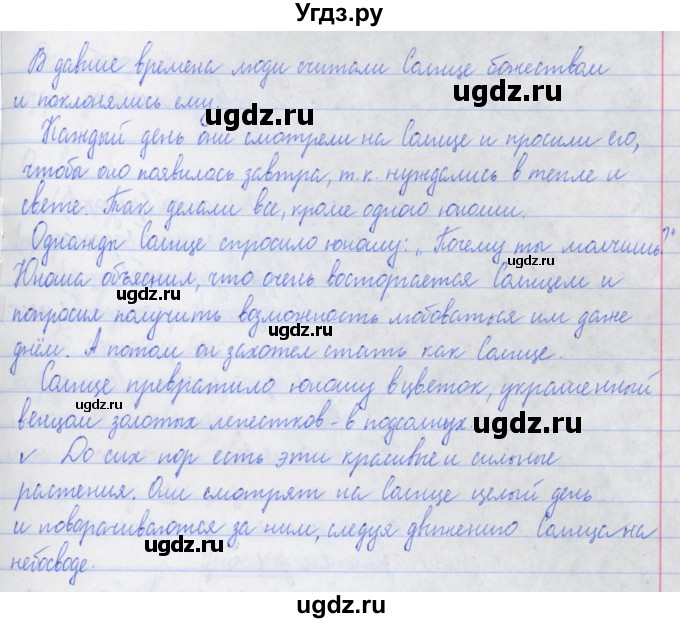 Угдз.ру
В давние времена люди считали Солнце божеством
и поклонялись ему.
ugdz.ru
ugdz.ru
Каждый день они смотрели на Солнце и просили его,
чтобы оно появилось завтра, т.к. нуждались в тепле и
свете. Так делали все, кроме одного юноши.
Однажды Солнце спросило юношу: „Почему ты молчишь?"
ugdz.ru
Юноша объяснил, что очень восторгается Солнцем и
ugdz.ru
попросил получить возможность любоваться им даже
ugdz.ru
днём. А потом он захотел стать как Солнце.
Солнце превратило юношу в цветок, украшенный
ugdz.ru
венцом золотых лепестков – в подсолнух
ugdz.ru
✓ До сих пор есть эти красивые и сильные
растения. Они смотрят на Солнце целый день
и поворачиваются за ним, следуя движению Солнца на
ugdz.ru
ugdz.ru
небосводе.
ugdz.ru